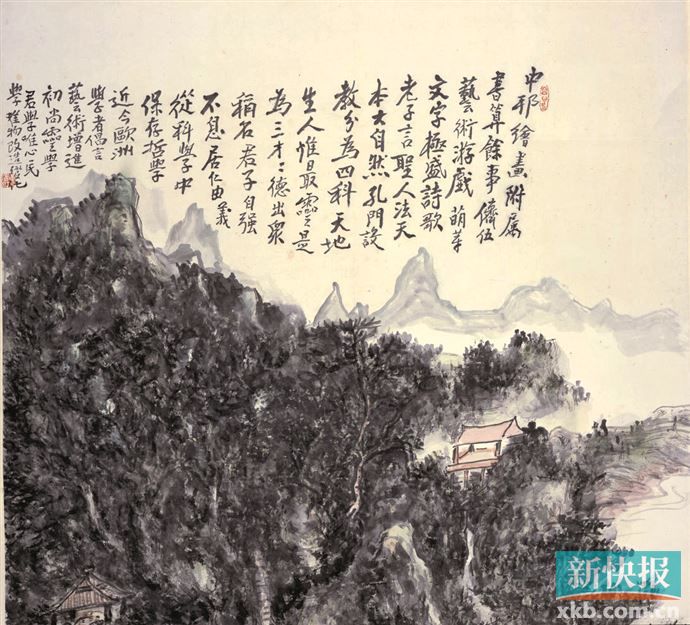 中邦繪畫附属
書算餘事儕伍
藝術游戲萌芽
文字極盛詩歌
老子言聖人法天
本大自然孔門設
教分為四科天地
生人惟最靈是
為三才三德出眾
稱名君子自强
不息居仁由義
從科學中
保存哲學
近今歐洲
學者倡言
藝術增進
初尚靈學
君學唯心民
學唯物改造
新快报
xkb.com.cn